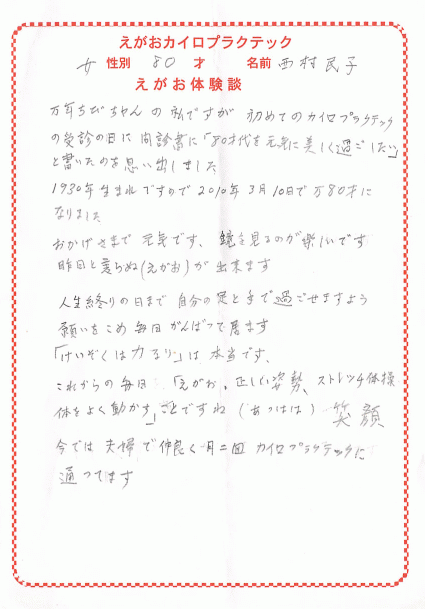 えがおカイロプラクテック
女 性別 80 才 名前 西村民子
えがお体験談
万年ちびちゃんの私ですが 初めてのカイロプラクテック
の受診の日に問診書に「80才代を元気に美しく過ごしたい」
と書いたのを思い出しました
1930年生まれですので2010年3月10日で万80才に
なりました
おかげさまで 元気です、鏡を見るのが楽しいです
昨日と変らぬ(えがお)が出来ます
人生終りの日まで自分の足と手で過ごせますよう
願いをこめ毎日がんばって居ます
「けいぞくは力なり」は本当です、
これからの毎日 「えがお、正しい姿勢、ストレッチ体操
体をよく動かす」ことですね(あっはは) 笑顔
今では夫婦で仲良く一月二回カイロプラクテックに
通ってます